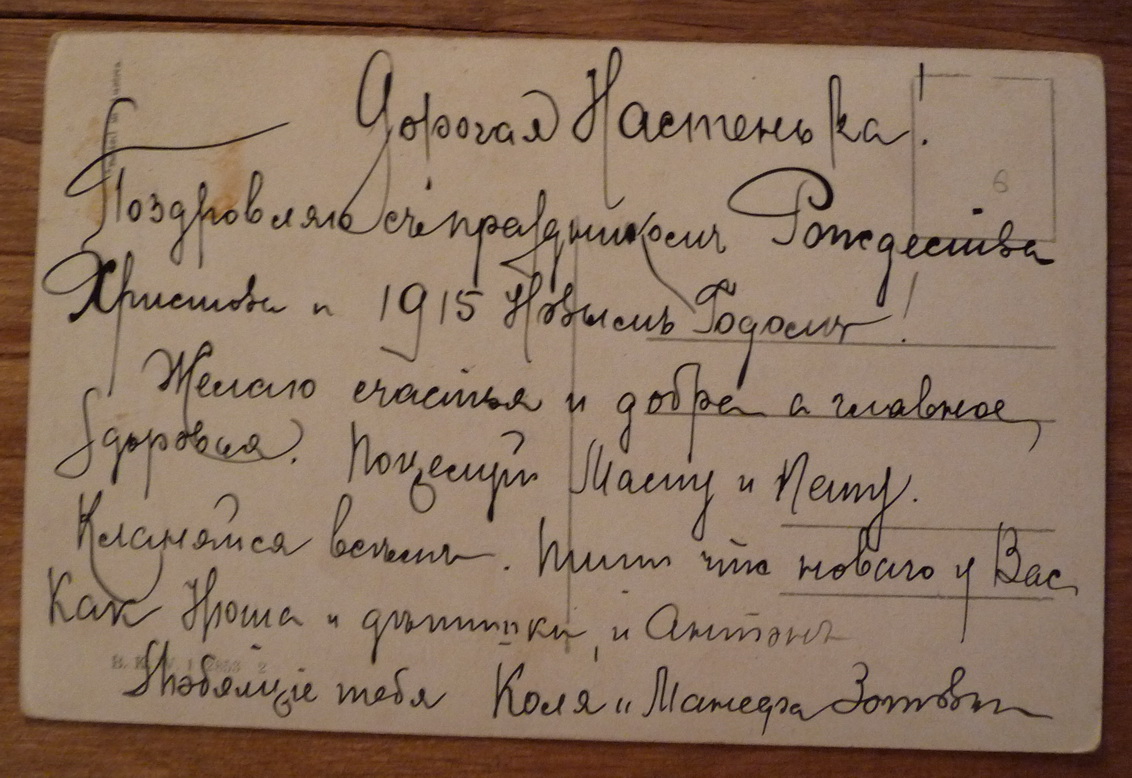 Дорогая Настенька!
Поздровляю съ праздникомъ Рождества
Христова и 1915 Новымъ Годомъ!
Желаю счастья и добра а главное,
Здоровья. Поцелуй Машу и Петю.
Кланяйся всемъ. Пиши что новаго у Вас
Как и детишки, и Антонъ
Любящіе тебя Коля и Зотовы
6